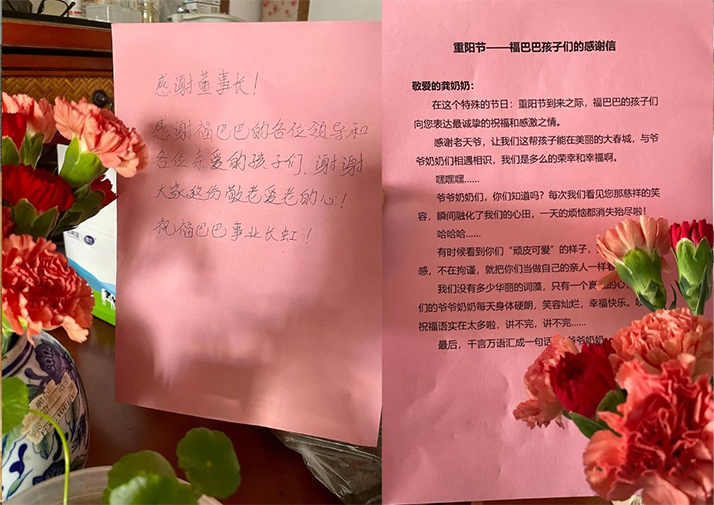 感谢董事长!
感谢福巴巴的各位领导和
各位亲爱的孩子们、谢谢
大家这份敬老爱老的心!
祝福巴巴事业长虹!
重阳节——福巴巴孩子们的感谢信
敬爱的龚奶奶:
在这个特殊的节日:重阳节到来之际,福巴巴的孩子们
向您表达最诚挚的祝福和感激之情。
感谢老天爷,让我们这帮孩子能在美丽的大春城,与爷
爷奶奶们相遇相识,我们是多么的荣幸和幸福啊。
嘿嘿嘿……
爷爷奶奶们,你们知道吗?每次我们看见您那慈祥的笑
容,瞬间融化了我们的心田,一天的烦恼都消失殆尽啦!
哈哈哈……
有时候看到你们“顽皮可爱”的样子,
感,不在拘谨,就把你们当做自己的亲人一样看
我们没有多少华丽的词藻,只有一个真
们的爷爷奶奶每天身体硬朗,笑容灿烂,幸福快乐。
祝福语实在太多啦,讲不完,讲不完……
最后,千言万语汇成一句话 爷爷奶奶